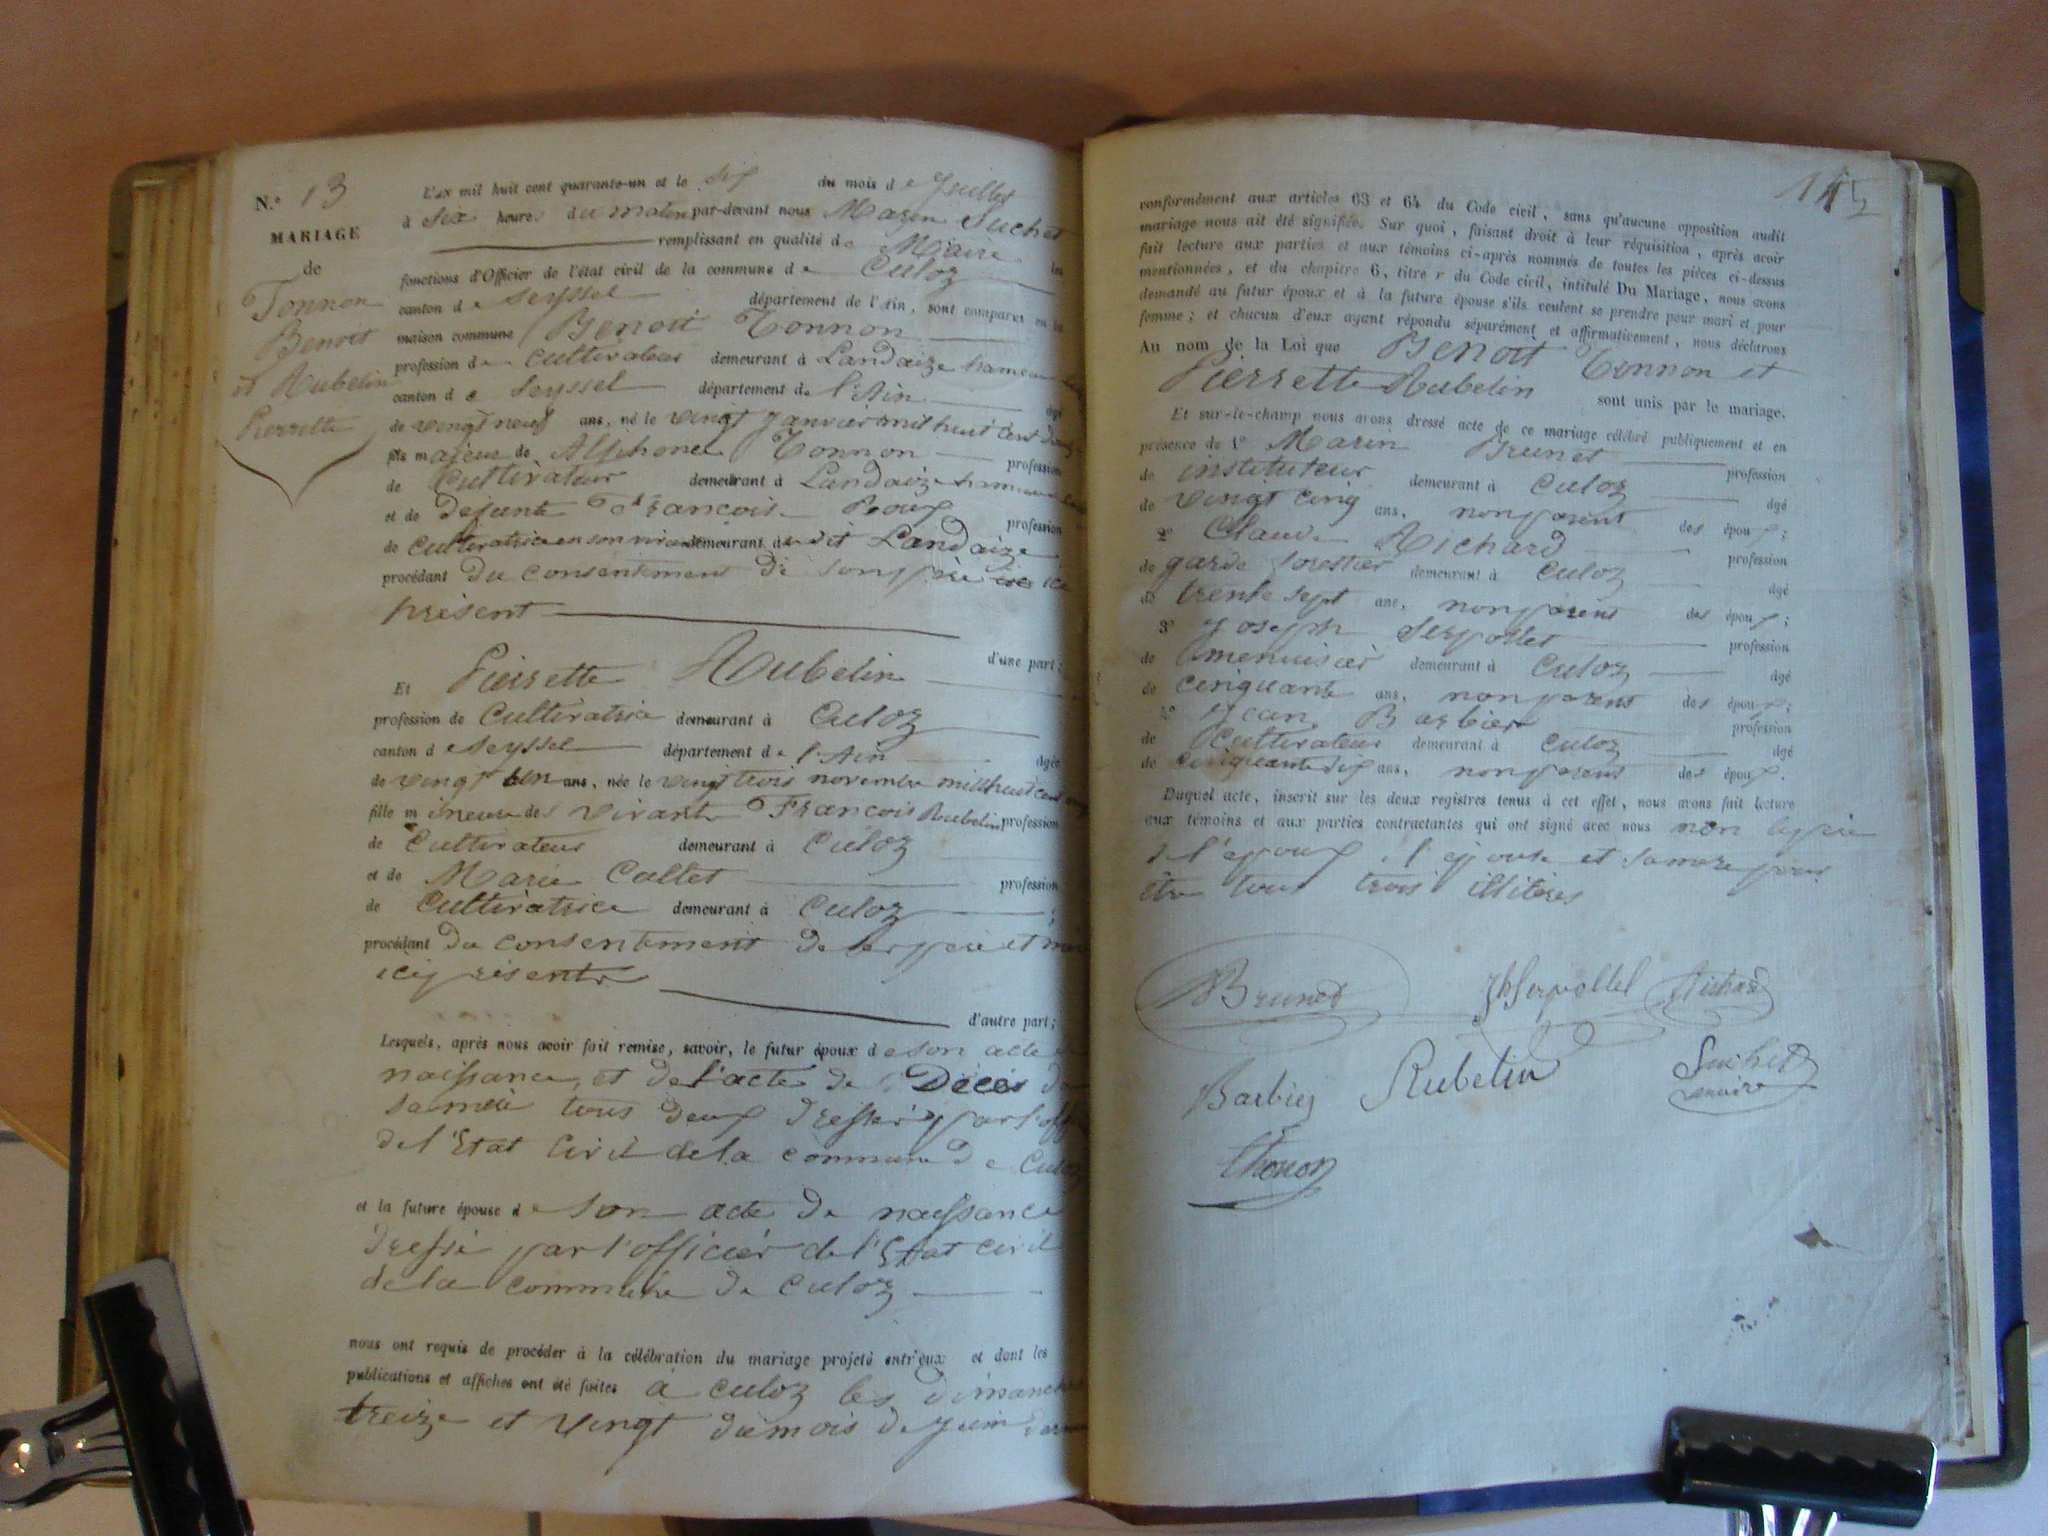 N.º 13
MARIAGE
de
Tonnon
Benoit
et Rubelin
Pierrette
L'an mil huit cent quarante-un et le six du mois de Juillet
à six heures du matin par-devant nous Marin Suchet
remplissant en qualité de Maire les
fonctions d'Officier de l'état civil de la commune de Culoz
canton de Seyssel département de l'Ain, sont comparus en la
maison commune Benoit Tonnon
profession de cultivateur demeurant à Landaize hameau
canton de Seyssel département de l'Ain âgé
de vingt neuf ans, né le vingt janvier mil huit cent
fils majeur de Alphonce Tonnon profession
de Cultivateur demeurant à Landaize hameau
et de défunte François Roux profession
de Cultivatrice en son vivant demeurant au dit Landaize
procédant du consentement de son père ici
présent
d'une part;
Et Pierrette Rubelin
profession de Cultivatrice demeurant à Culoz
canton de Seyssel département de l'Ain âgée
de vingt un ans, née le vingt trois novembre mil huit cent
fille mineure des vivants François Rubelin profession
de Cultivateur demeurant à Culoz
et de Marie Collet profession
de Cultivatrice demeurant à Culoz;
procédant du consentement de ses père et mère
ici présents
d'autre part;
Lesquels, après nous avoir fait remise, savoir, le futur époux de son acte de
naissance, et de l'acte de Décès de
sa mère tous deux dressés par l'off
de l'Etat Civil de la commune de Culoz
et la future épouse de son acte de naissance
dressé par l'officier de l'Etat civil
de la commune de Culoz
nous ont requis de procéder à la célébration du mariage projeté entr'eux et dont les
publications et affiches ont été faites à Culoz les dimanches
treize et vingt du mois de juin dernier
115
conformément aux articles 63 et 64 du Code civil, sans qu'aucune opposition audit
mariage nous ait été signifiée. Sur quoi, faisant droit à leur réquisition, après avoir
fait lecture aux parties et aux témoins ci-après nommés de toutes les pièces ci-dessus
mentionnées, et du chapitre 6, titre r du Code civil, intitulé Du Mariage, nous avons
demandé au futur époux et à la future épouse s'ils veulent se prendre pour mari et pour
femme; et chacun d'eux ayant répondu séparément et affirmativement, nous déclarons
Au nom de la Loi que Benoit Tonnon et
Pierrette Rubelin sont unis par le mariage.
Et sur-le-champ nous avons dressé acte de ce mariage célébré publiquement et en
présence de 1º Marin Brunet profession
de instituteur demeurant à Culoz âgé
de vingt cinq ans, non parent des époux;
2º Claude Richard profession
de garde forestier demeurant à Culoz âgé
de trente sept ans, non parent des époux;
3º Joseph Serpollet profession
de menuisier demeurant à Culoz âgé
de cinquante ans, non parent des époux;
4º Jean Barbier profession
de Cultivateur demeurant à Culoz âgé
de cinquante dix ans, non parent des époux.
Duquel acte, inscrit sur les deux registres tenus à cet effet, nous avons fait lecture
aux témoins et aux parties contractantes qui ont signé avec nous non le père
de l'époux, l'épouse et sa mère pour
être tous trois illitérés
Brunet Jh Serpollet Richard
Barbier Rubelin Suchet
maire
thonon